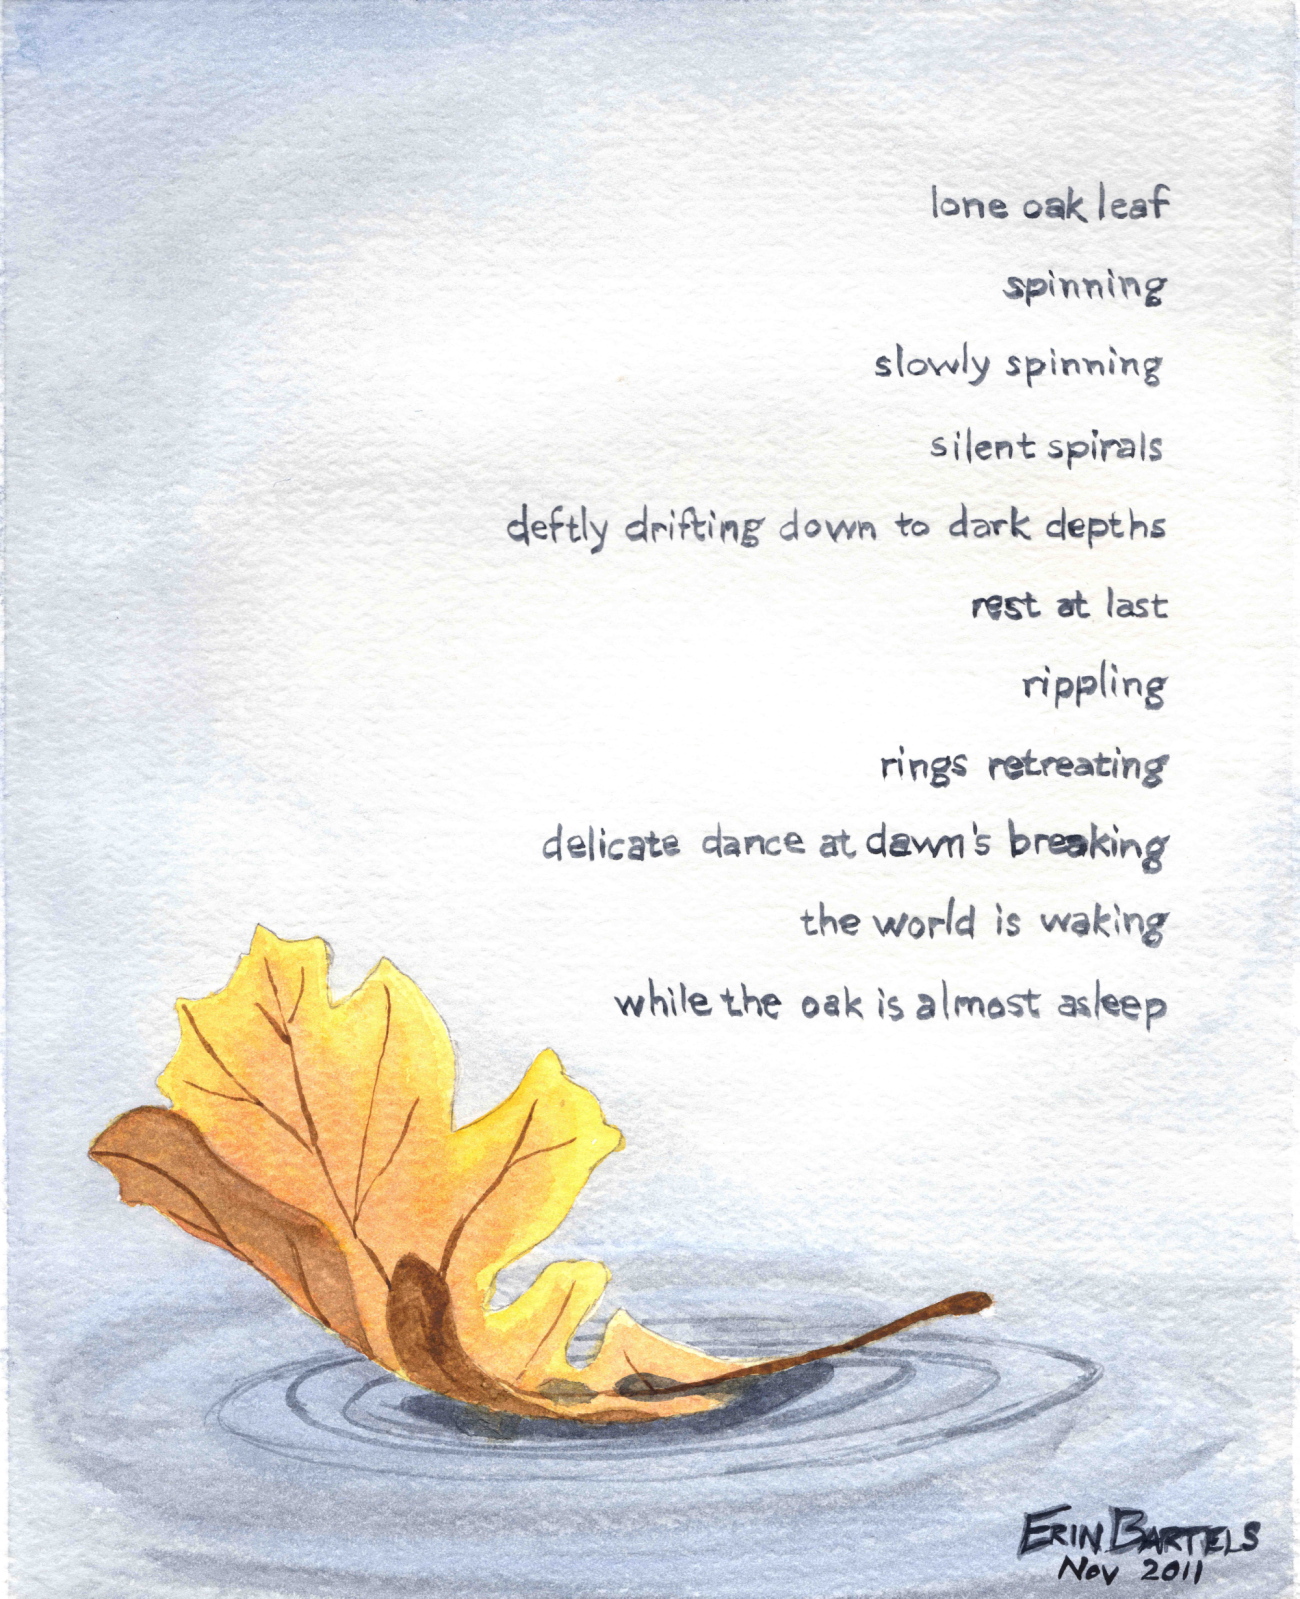 lone oak leaf
spinning
slowly spinning
silent spirals
deftly drifting down to dark depths
rest at last
rippling
rings retreating
delicate dance at dawn's breaking
the world is waking
while the oak is almost asleep
ERIN BARTELS
Nov 2011